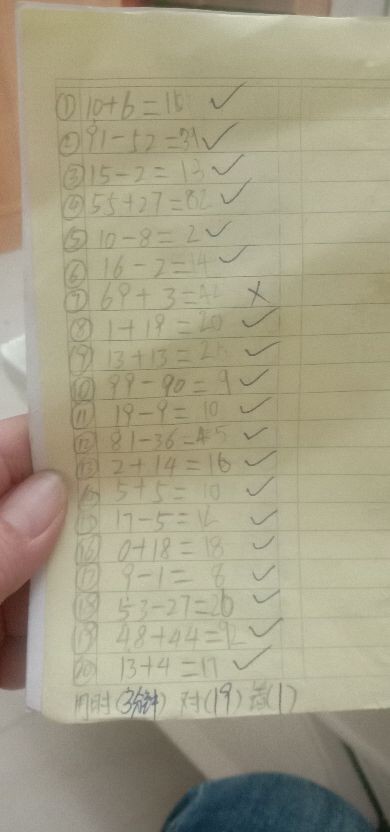 ① 10+6=16 ✓
② 91-52=39 ✓
③ 15-2=13 ✓
④ 55+27=82 ✓
⑤ 10-8=2 ✓
⑥ 16-2=14 ✓
⑦ 69+3= ×
⑧ 1+19=20 ✓
⑨ 13+13=26 ✓
⑩ 99-90=9 ✓
⑪ 19-9=10 ✓
⑫ 81-36=45 ✓
⑬ 2+14=16 ✓
⑭ 5+5=10 ✓
⑮ 17-5=12 ✓
⑯ 0+18=18 ✓
⑰ 9-1=8 ✓
⑱ 53-27=26 ✓
⑲ 48+44=92 ✓
⑳ 13+4=17 ✓
用时(3分钟) 对(19) 错(1)